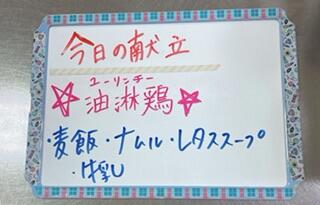 今日の献立
ユーリンチー
☆油淋鶏☆
・麦飯・ナムル・レタススープ
・牛乳